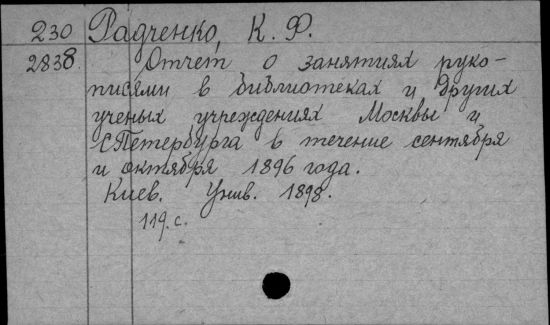 230 Радченко, К. Ф.
2838. Отчет о занятиях руко-
писями в библиотеках и других
ученых учреждениях Москвы и
С.Петербурга в течение сентября
и октября 1896 года.
Киев. Унив. 1898.
119.с.